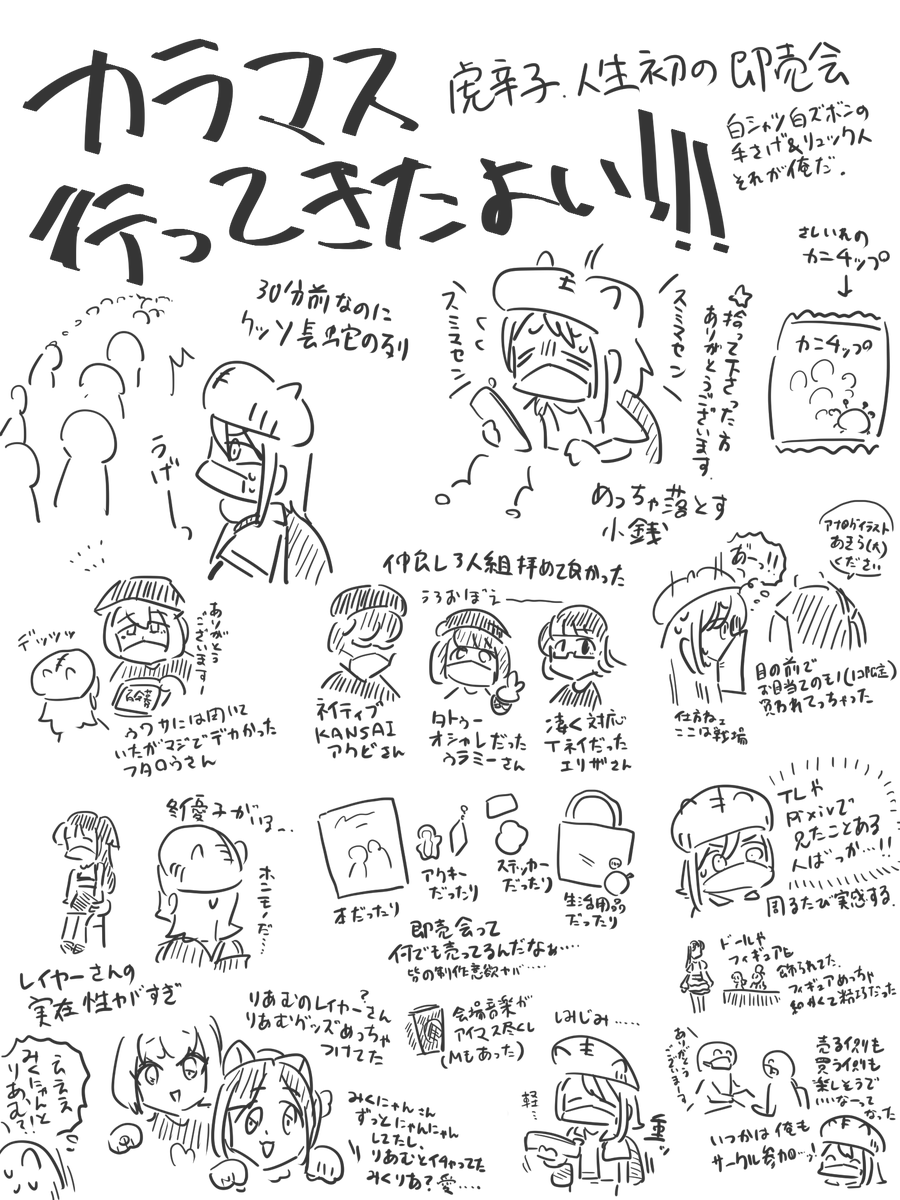 カラマス
行ってきたよい!!!
虎辛子.人生初の即売会
白シャツ白ズボンの
手さげ&リュック人
それが俺だ.
30分前なのに
クッソ長蛇の列
うげー
スミマセン
スミマセン
☆拾って下さった方
ありがとうございます
めっちゃ落とす
小銭
さしいれの
カニチップ
↓
カニチップ
デッッッ
ありがとう
ございますー
ウワサには聞いて
いたがマジでデカかった
フタロウさん
仲良し3人組拝めて良かった
うろおぼえ
ネイティブ
KANSAI
アクビさん
タトゥー
オシャレだった
ウラミーさん
凄く対応
Tネイだった
エリザさん
あーっ!!
アナログイラスト
あきら(大)
ください
目の前で
お目当てのもの(1コ限定)
買われてっちゃった
仕方ねェ
ここは戦場
冬優子がいる〜.
ホンモノだ…
レイヤーさんの
実在性ヤバすぎ
本だったり
アクキー
だったり
ステッカー
だったり
生活用品
だったり
即売会って
何でも売ってるんだなぁ…
皆の制作意欲ヤバ……
TLや
Pixivで
見たことある
人ばっか…!!
周るたび実感する.
ドールや
フィギュアも
飾られてた.
フィギュアめっちゃ
細かくて精巧だった
りあむのレイヤーさん?
りあむグッズめっちゃ
つけてた
会場音楽が
アイマス尽くし
(Mもあった)
えええ
みくにゃんと
りあむ?!
みくにゃんさん
ずっとにゃんにゃん
してたし、
りあむとイチャってた
みくりあ?愛….
しみじみ……
軽…
重ッ
ありがとう
ございますー
売る側も
買う側も
楽しそうで
いいなーって
なった
いつかは俺も
サークル参加…!